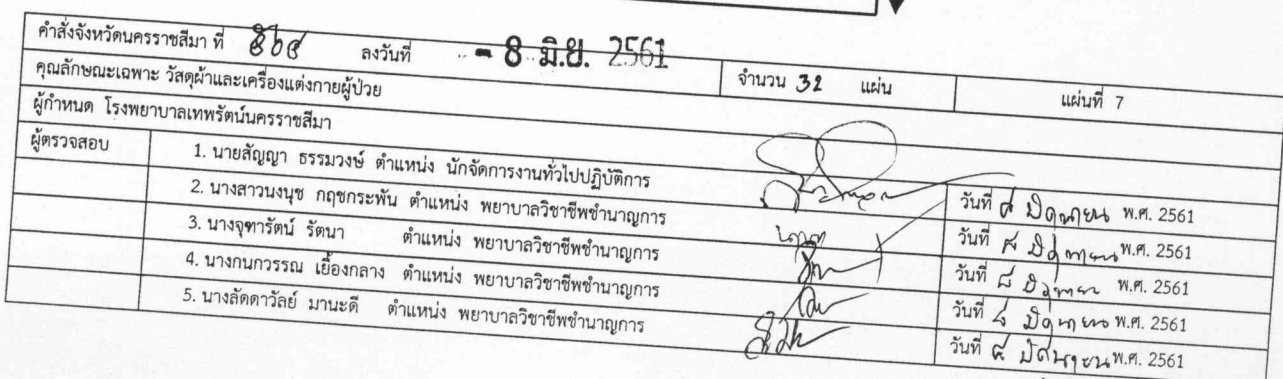 คำสั่งจังหวัดนครราชสีมา ที่ ลงวันที่ - 8 มิ.ย. 2561 จำนวน 32 แผ่น แผ่นที่ 7
คุณลักษณะเฉพาะ วัสดุผ้าและเครื่องแต่งกายผู้ป่วย
ผู้กำหนด โรงพยาบาลเทพรัตน์นครราชสีมา
ผู้ตรวจสอบ 1. นายสัญญา ธรรมวงษ์ ตำแหน่ง นักจัดการงานทั่วไปปฏิบัติการ วันที่ ๘ มิถุนายน พ.ศ. 2561
2. นางสาวนงนุช กฤชกระพัน ตำแหน่ง พยาบาลวิชาชีพชำนาญการ วันที่ ๘ มิถุนายน พ.ศ. 2561
3. นางจุฑารัตน์ รัตนา ตำแหน่ง พยาบาลวิชาชีพชำนาญการ วันที่ ๘ มิถุนายน พ.ศ. 2561
4. นางกนกวรรณ เยื้องกลาง ตำแหน่ง พยาบาลวิชาชีพชำนาญการ วันที่ ๘ มิถุนายน พ.ศ. 2561
5. นางลัดดาวัลย์ มานะดี ตำแหน่ง พยาบาลวิชาชีพชำนาญการ วันที่ ๘ มิถุนายน พ.ศ. 2561